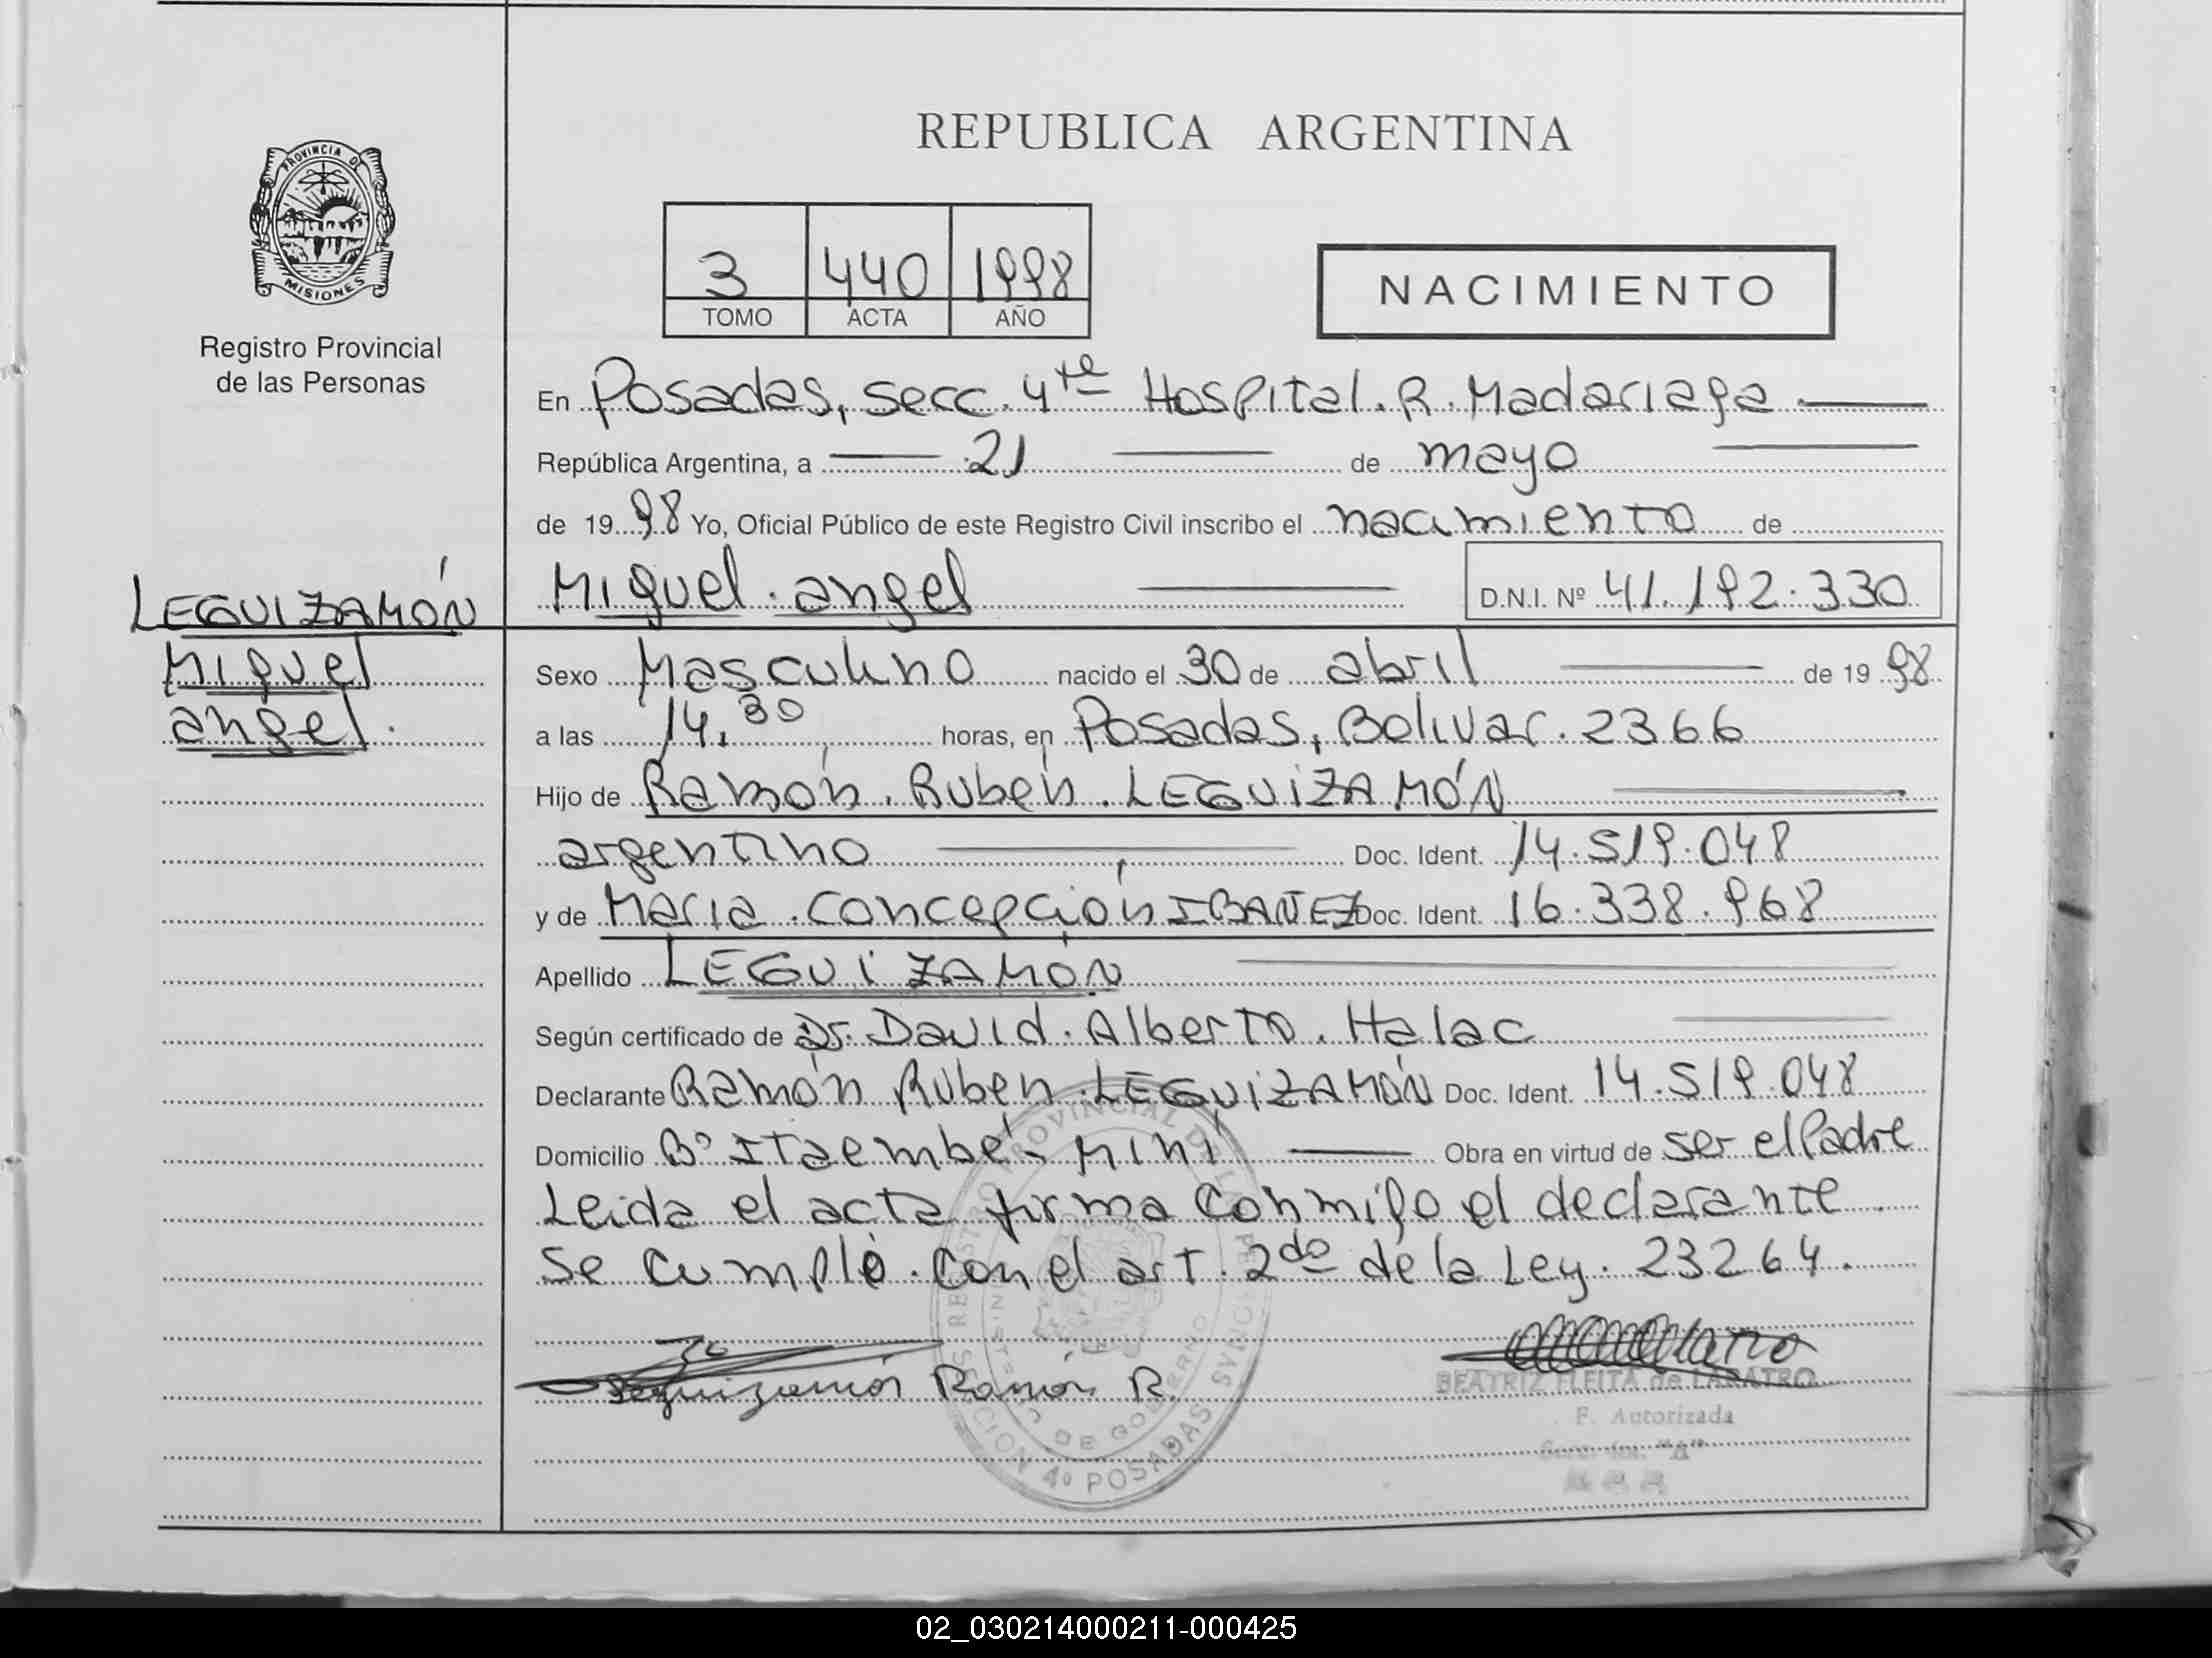 REPUBLICA ARGENTINA
PROVINCIA DE
MISIONES
Registro Provincial
de las Personas
3 440 1998
TOMO ACTA AÑO
NACIMIENTO
En Posadas, secc. 4ta Hospital. R. Madariaga.
República Argentina, a 21 de mayo
de 1998 Yo, Oficial Público de este Registro Civil inscribo el nacimiento de
Miguel. angel D.N.I. Nº 41.192.330
LEGUIZAMÓN
Miguel
angel.
Sexo Masculino nacido el 30 de abril de 1998
a las 14,30 horas, en Posadas, Bolivar. 2366
Hijo de Ramón. Rubén. LEGUIZAMÓN
argentino Doc. Ident. 14.519.048
y de María. Concepción IBAÑEZ Doc. Ident. 16.338.968
Apellido LEGUIZAMÓN
Según certificado de Dr. David. Alberto. Halac
Declarante Ramón Ruben. LEGUIZAMÓN Doc. Ident. 14.519.048
Domicilio Bº Itaembé- Miní Obra en virtud de ser el Padre
Leida el acta firma conmigo el declarante.
se cumplé. con el art. 2do de la Ley. 23264.
Leguizamón Ramón R.
BEATRIZ FLEITA de LARATRO
F. Autorizada
REGISTRO PROVINCIAL DE LAS PERSONAS
MINISTERIO DE GOBIERNO
SECCION 4º POSADAS
02_030214000211-000425